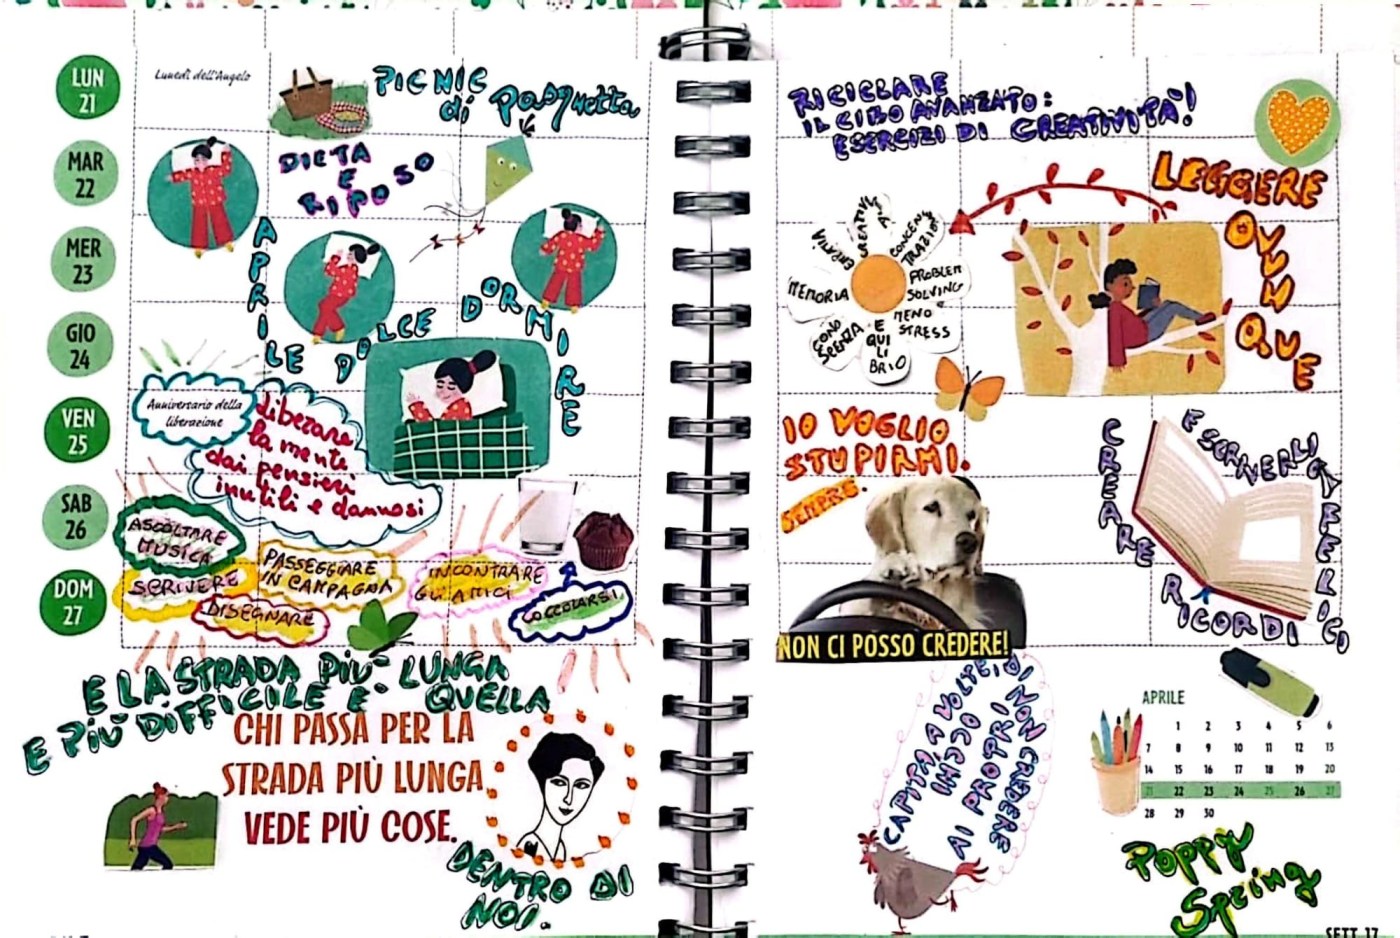 LUN
21
Lunedì dell'Angelo
PIC NIC
di Pasquetta
MAR
22
DIETA
E
RIPOSO
MER
23
APRILE DOLCE DORMIRE
GIO
24
VEN
25
Anniversario della
liberazione
Liberare
la mente
dai pensieri
inutili e dannosi
SAB
26
ASCOLTARE
MUSICA
PASSEGGIARE
IN CAMPAGNA
INCONTRARE
GLI AMICI
DOM
27
SCRIVERE
DISEGNARE
COCCOLARSI
E LA STRADA PIÙ LUNGA
E PIÙ DIFFICILE E' QUELLA
CHI PASSA PER LA
STRADA PIÙ LUNGA
VEDE PIÙ COSE.
DENTRO DI
NOI.
RICICLARE
IL CIBO AVANZATO:
ESERCIZI DI CREATIVITÀ!
LEGGERE
OVUNQUE
CREATIVITÀ
CONCENTRAZIONE
PROBLEM
SOLVING
MENO
STRESS
EQUILIBRIO
CONOSCENZA
MEMORIA
IO VOGLIO
STUPIRMI.
SEMPRE.
NON CI POSSO CREDERE!
CREARE RICORDI FELICI
E SCRIVERLI
CAPITA, A VOLTE, DI
NON CREDERE
AI PROPRI
APRILE
1 2 3 4 5 6
7 8 9 10 11 12 13
14 15 16 17 18 19 20
21 22 23 24 25 26 27
28 29 30
Poppy
Spring
SETT. 17